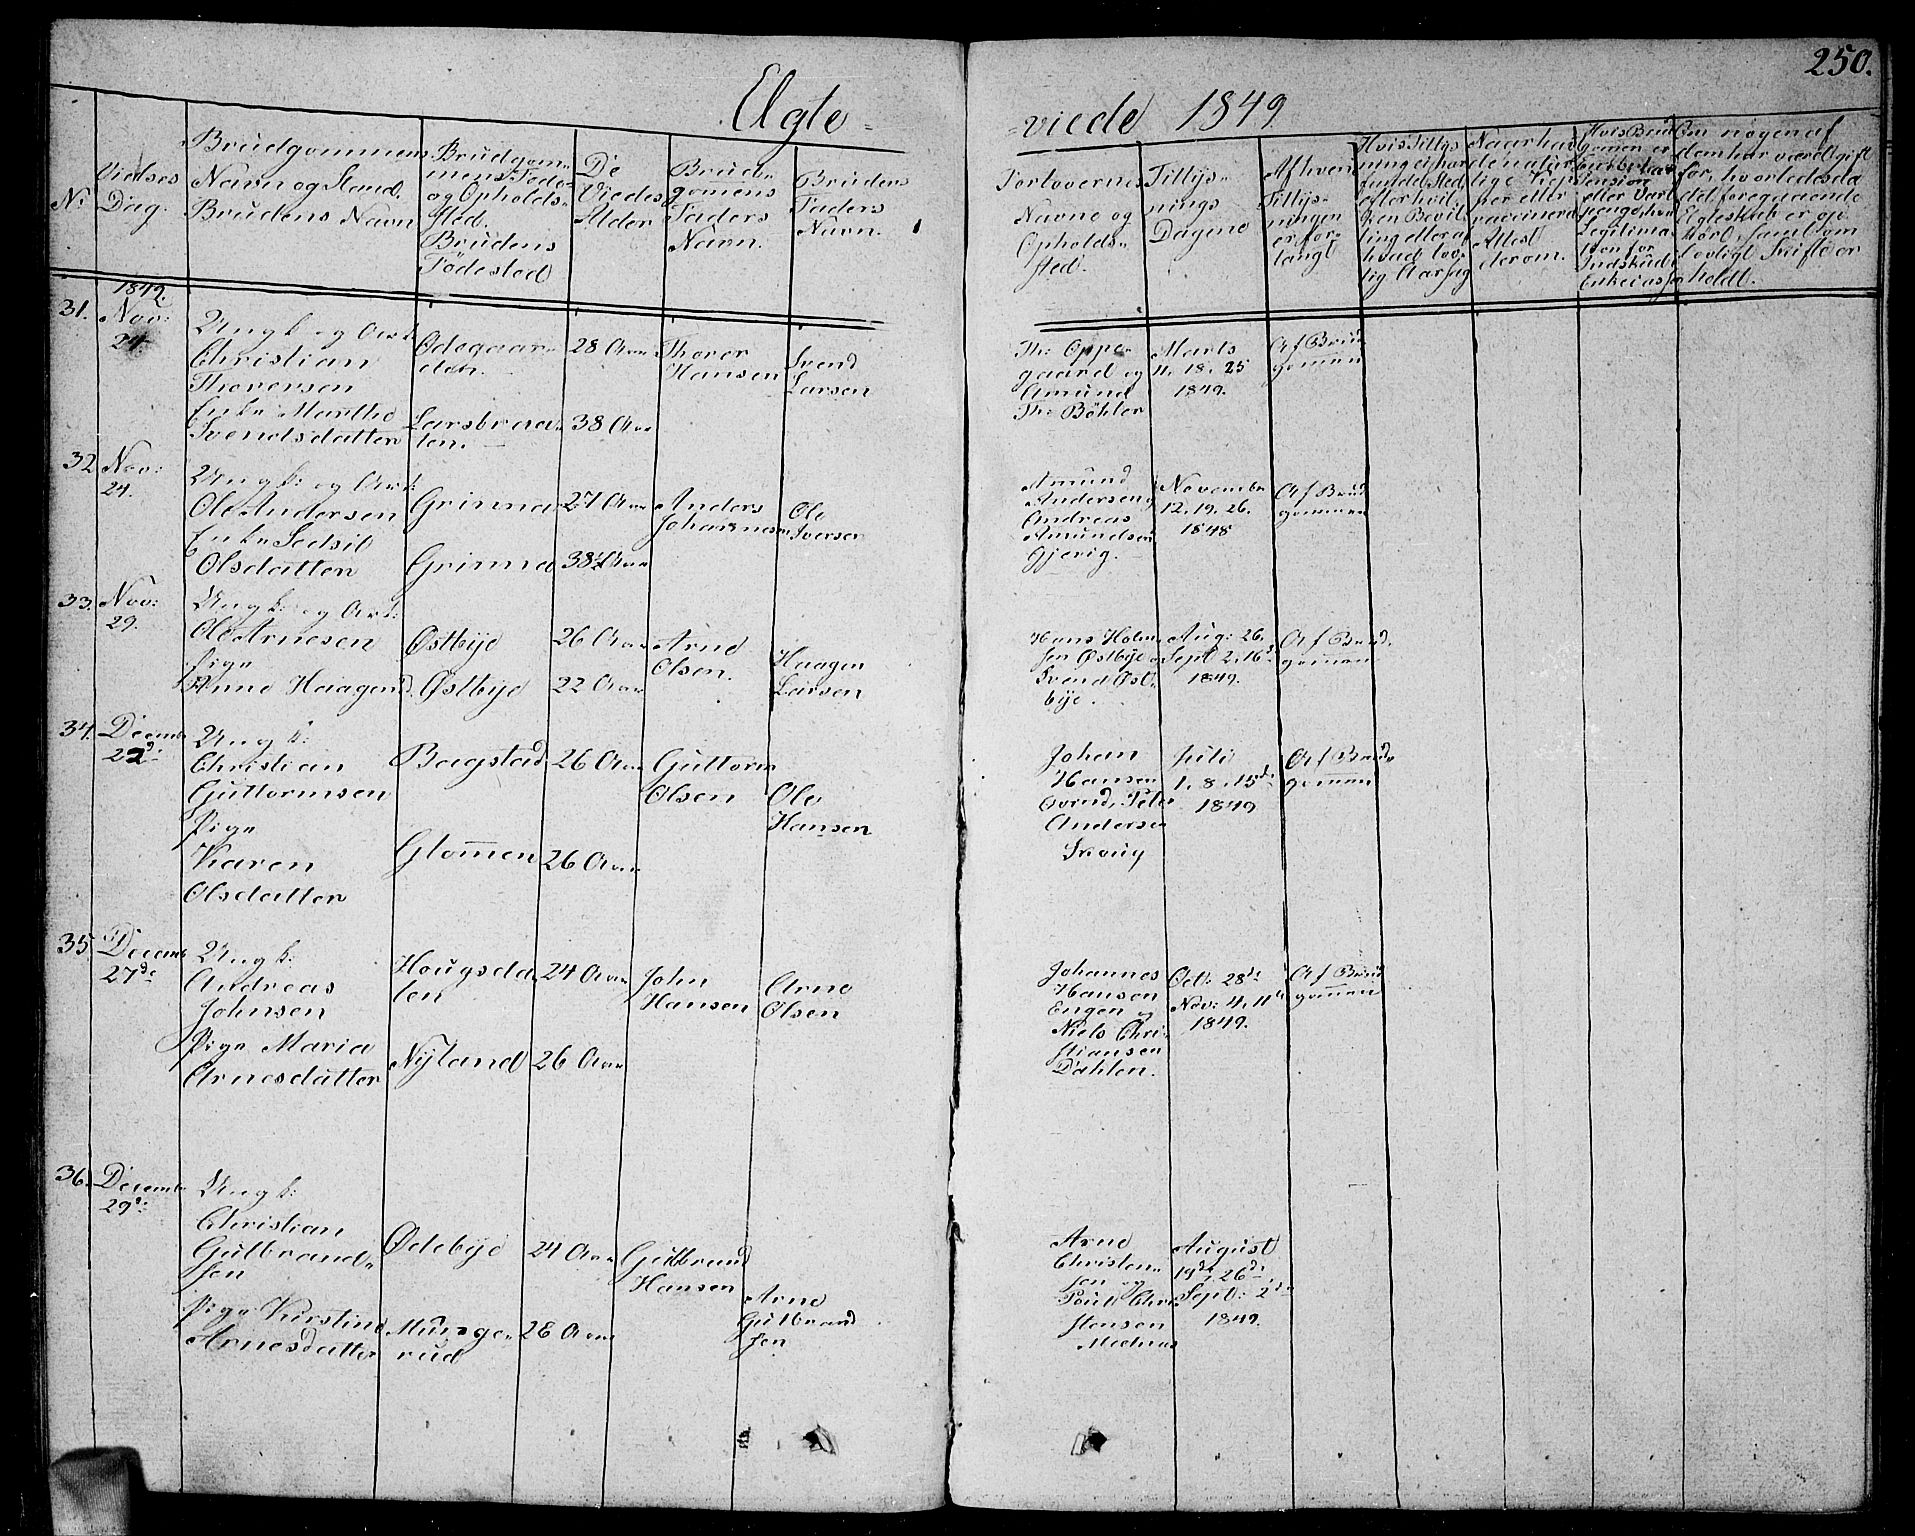 250.
Egte=
=viede 1849
No
Vielses
Dag.
Brudgommens
Navn og Stand.
Brudens Navn
Brudgom=
mens Føde=
og Opholds=
sted.
Brudens
Fødested
De
Viedes
Alder
Brud=
gomens
Faders
Navn.
Brudens
Faders
Navn.
Forlovernes
Navne og
Opholds=
sted.
Tillys=
nings
Dagene
Af hvem
Tillys=
ningen
er for=
langt
Hvis Tillys
ning ei har
fundet Sted,
efter hvil
ken Bevil
ling eller af
hvad lov=
lig Aarsag
Naar har
de natur
lige Kop
per eller
vaccinered
Attest
derom.
Hvis Brud
gomen er
Enkeberhar
pension
eller Vart
penge, hans
Legitima
tion for
Indskud i
Enkecassen
Om nogen af
dem har været gift
før, hvorledes da
det foregaaende
Egteskab er op
hørt, samt om
lovligt Skifte er
holdt.
1849.
31.
Nov:
24.
Ungk. og Arb:
Christian
Thorersen
Enke Marthe
Svendsdatter
Ødegaar=
den.
Larsbraa=
ten.
28 Aar
38 Aar
Thorer
Hansen
Svend
Larsen
Th: Oppe=
gaard og
Amund
Th: Böhler
Marts
4. 18. 25
1849.
Af Brud
gommen
32
Nov:
24.
Ungk: og Arb:
Ole Andersen
Enke Sedsil
Olsdatter
Grinna
Grinna
27 Aar
38½ Aar
Anders
Johannesen
Ole
Iversen
Amund
Andersen og
Andreas
Amundsen
Gjervig.
Novembr
12. 19. 26.
1848
Af Brud
gommen
33.
Nov:
29.
Ungk: og Arb:
Ole Arnesen
Pige
Anne Haagensd.
Østbye
Østbye
26 Aar
22 Aar
Arne
Olsen.
Haagen
Larsen
Hans Halvor
sen Østbye og
Svend Øst=
bye.
Aug: 26.
Sept 2. 16de
1849.
Af Brud=
gommen
34.
Decembr
22de
Ungk:
Christian
Guttormsen
Pige
Karen
Olsdatter
Bagstad
Glomen
26 Aar
26 Aar
Guttorm
Olsen
Ole
Hansen
Johan
Hansen
Peter
Andersen
Skoug
Juli
1. 8. 15de
1849
Af Brud=
gommen
35.
Decemb
27de
Ungk:
Andreas
Johnsen
Pige Maria
Arnesdatter
Hougsda
len
Nyland
24 Aar
26 Aar
John
Hansen
Arne
Olsen
Johannes
Hansen
Engen og
Niels Chri=
stiansen
Dahlen.
Oct: 28de
Nov: 4. 11te
1849.
Af Brud
gommen
36.
Decembr
29de
Ungk:
Christian
Gulbrand=
sen
Pige Kirstine
Arnesdatter
Ødebye
Munge
rud
24 Aar
28 Aar
Gulbrand
Hansen
Arne
Gulbrand
sen
Arne
Christen=
sen og
Poul Chri
stensen
August
19de, 26de
Sept: 2den
1849.